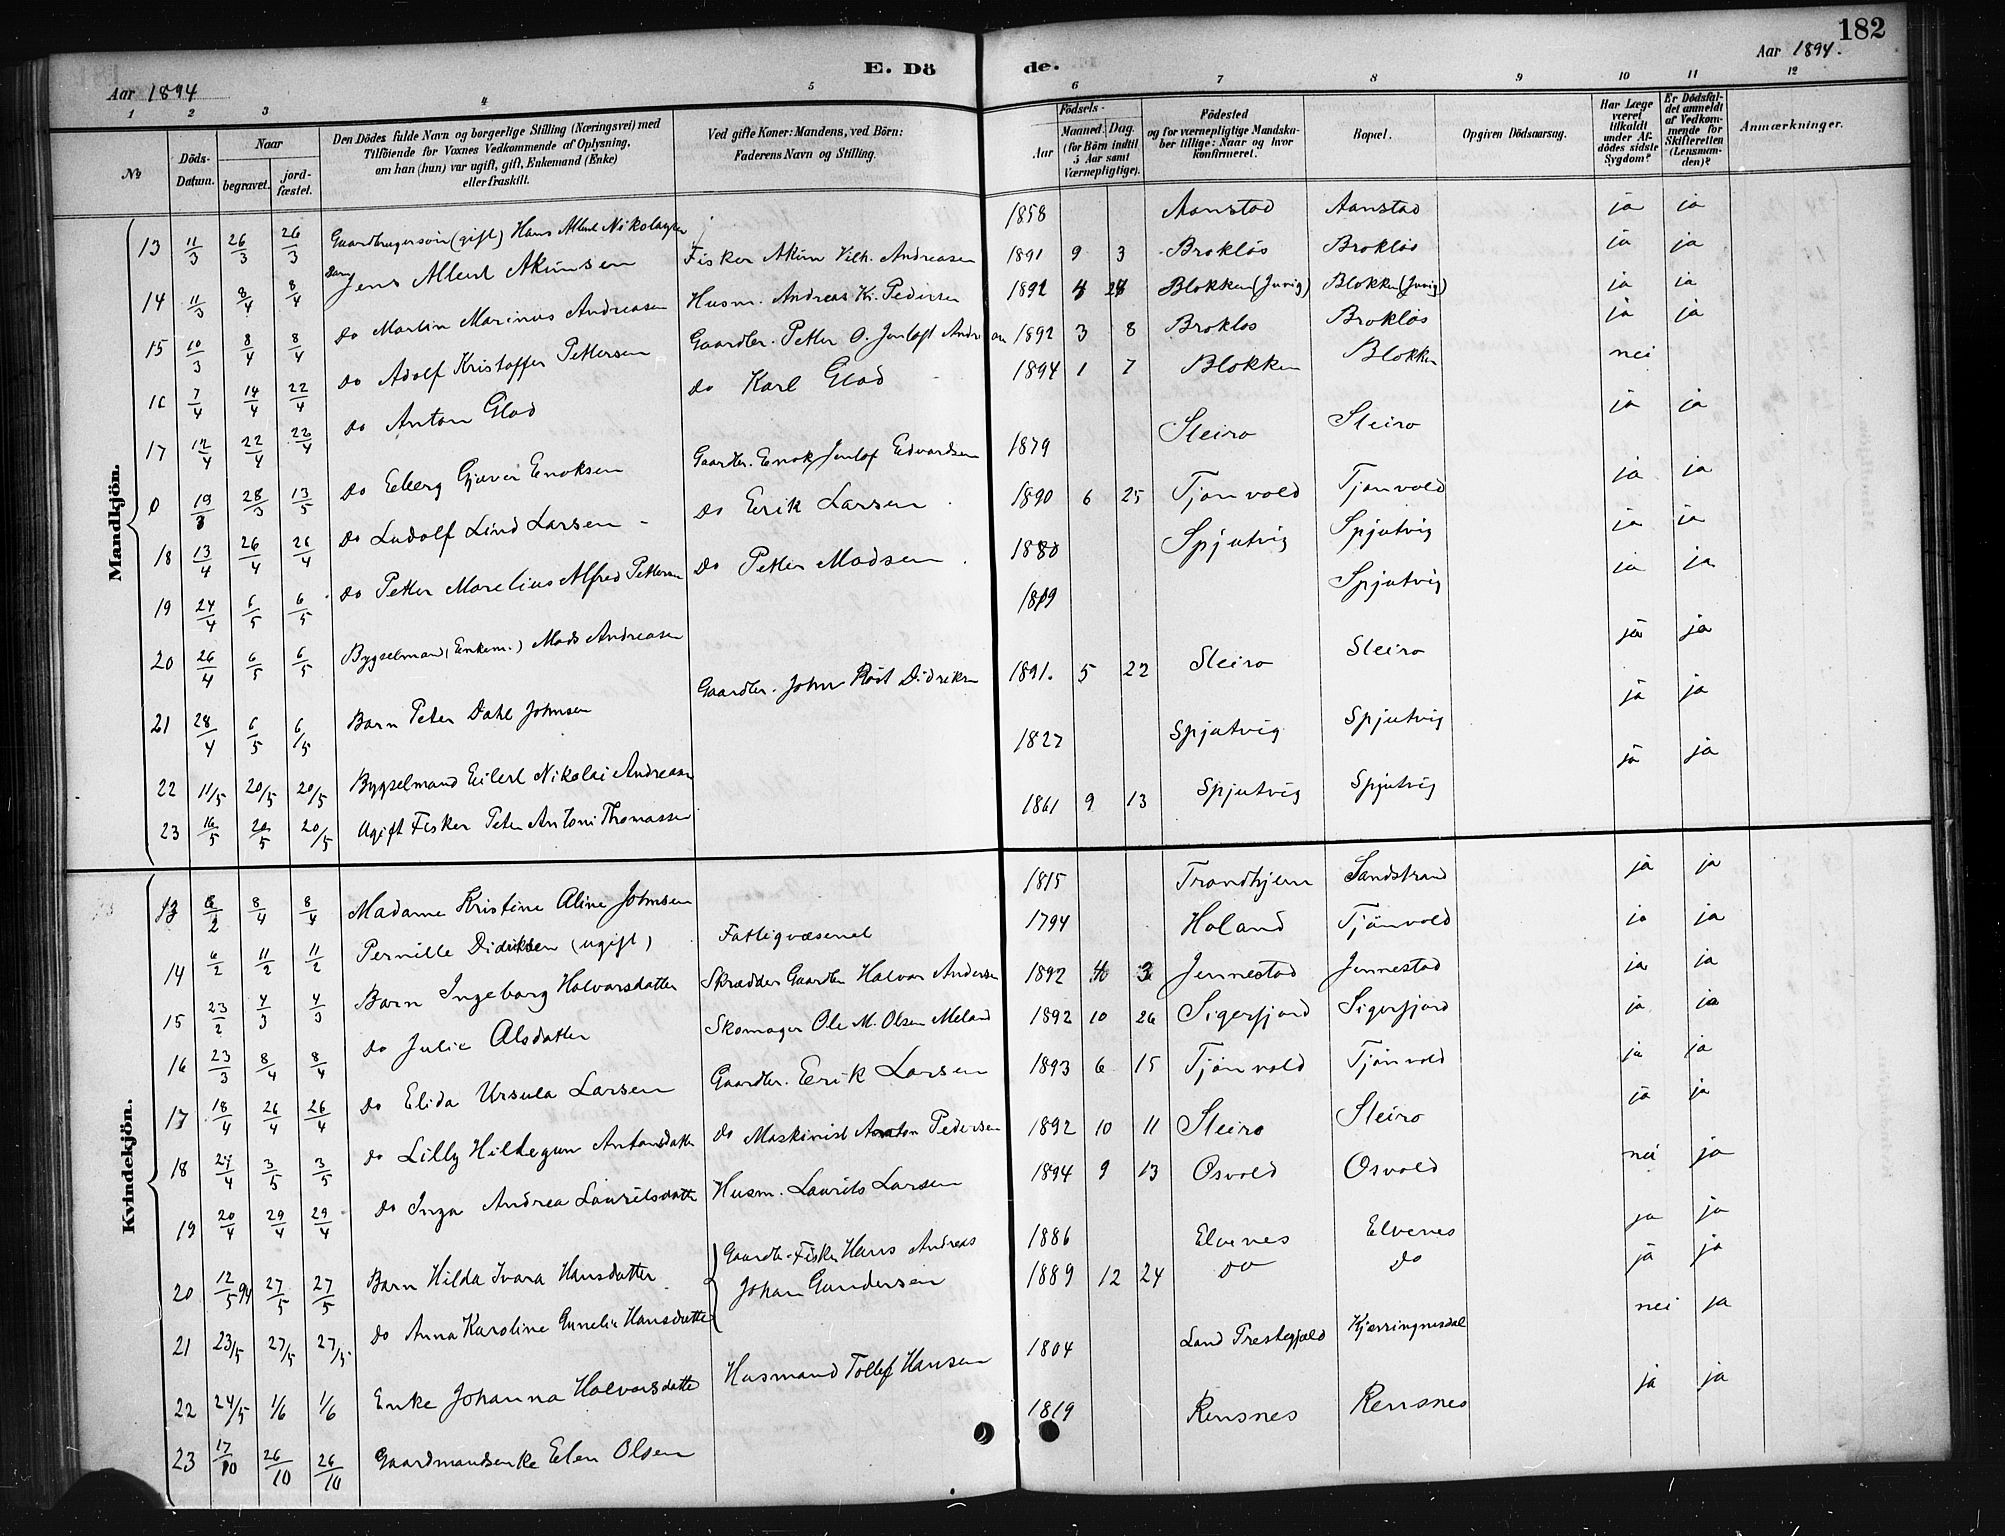 182
Aar 1894
E. Döde.
Aar 1894.
1 2 3 4 5 6 7 8 9 10 11 12
№
Döds-Datum.
Naar
begravet.
jord-fæstet.
Den Dödes fulde Navn og borgerlige Stilling (Næringsvei) med
Tilföiende for Voxnes Vedkommende af Oplysning,
om han (hun) var ugift, gift, Enkemand (Enke)
eller fraskilt.
Ved gifte Koner: Mandens, ved Börn:
Faderens Navn og Stilling.
Födsels-
Aar
Maaned. Dag.
(for Börn indtil
5 Aar samt
Værnepligtige).
Födested
og for værnepligtige Mandska-
ber tillige: Naar og hvor
konfirmeret.
Bopæl.
Opgiven Dödsaarsag.
Har Læge
været
tilkaldt
under Af-
dödes sidste
Sygdom?
Er Dödsfal-
det anmeldt
af Vedkom-
mende for
Skifteretten
(Lensman-
den)?
Anmærkninger.
Mandkjön.
13 11/3 26/3 26/3 Gaardbrugersön (gift) Hans Albert Nikolaysen 1858 Aanstad Aanstad ja ja
14 11/3 8/4 8/4 Barn Jens Albert Akimsen Fisker Akim Vilh. Andreasen 1891 9 3 Brokløs Brokløs ja ja
15 10/3 8/4 8/4 do Martin Marinus Andreasen Husm. Andreas Kr. Pedersen 1892 4 28 Blokken (Jurig) Blokken (Jurig) ja ja
16 7/4 14/4 22/4 do Adolf Kristoffer Pettersen Gaardbr. Petter O. Jenloft Andreasen 1892 3 8 Brokløs Brokløs ja ja
17 12/4 22/4 22/4 do Anton Glad do Karl Glad 1894 1 7 Blokken Blokken nei
0 19/3 28/3 13/5 do Edberg Gjæver Enoksen Gaardbr. Enok Jenlof Edvardsen 1879 Sleiro Sleiro ja ja
18 13/4 26/4 26/4 do Ludolf Lind Larsen do Eerik Larsen 1890 6 25 Tjonvold Tjonvold ja ja
19 24/4 6/5 6/5 do Petter Marelius Alfred Pettersen do Petter Madsen 1880 Spjutvig Spjutvig ja ja
20 26/4 6/5 6/5 Bygselmand (Enkem.) Mads Andreasen 1819 Spjutvig ja ja
21 28/4 6/5 6/5 Barn Peter Dahl Johnsen Gaardbr. John Røst Didriksen 1891. 5 22 Sleiro Sleiro ja ja
22 11/5 20/5 20/5 Bygselmand Eilert Nikolai Andreasen 1827 Spjutvig Spjutvig ja ja
23 16/5 20/5 20/5 Ugift Fisker Peter Antoni Thomassen 1861 9 13 Spjutvig Spjutvig ja ja
Kvindekjön.
13 8/2 8/4 8/4 Madame Kristine Aline Johnsen 1815 Trondhjem Sandstrand ja ja
14 6/2 11/2 11/2 Pernille Didriksen (ugift) Fattigvæsenet 1794 Holand Tjönvold ja ja
15 23/2 4/3 4/3 Barn Ingeborg Halvorsdatter Skrædder Gaardbr Halvor Andersen 1892 3 Jennestad Jennestad ja ja
16 23/3 8/4 8/4 do Julie Olsdatter Skomager Ole M. Olsen Meland 1892 10 26 Sigerfjord Sigerfjord ja ja
17 18/4 26/4 26/4 do Elida Ursula Larsen Gaardbr. Eerik Larsen 1893 6 15 Tjönvold Tjönvold ja ja
18 24/4 3/5 3/5 do Lilly Hildegun Antonsdatter do Maskinist Anton Pedersen 1892 10 11 Sleiro Sleiro ja ja
19 20/4 29/4 29/4 do Inga Andrea Lauritsdatter Husm. Laurits Larsen 1894 9 13 Osvold Osvold nei ja
20 12/5 94 27/5 27/5 Barn Hilda Ivara Hansdatter Gaardbr. Fisker Hans Andreas 1886 Elvenes Elvenes ja ja
21 23/5 27/5 27/5 do Anna Karoline Gunelie Hansdatter Johan Gundersen 1889 12 24 do do ja ja
22 24/5 1/6 1/6 Enke Johanna Halvorsdatter Husmand Tollef Hansen 1804 Land Prestegjeld Kjerringnesdal nei ja
23 17/10 26/10 26/10 Gaardmandsenke Elen Olsen 1819 Rensnes Rensnes ja ja